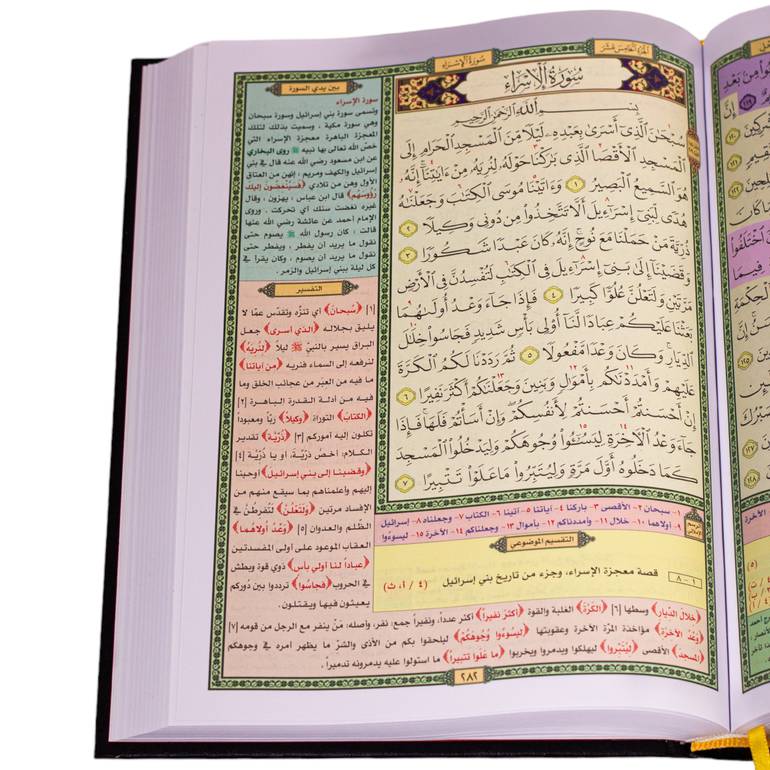 الجزء الخامس عشر
سورة الإسراء
سُورَةُ الْإِسْرَاءِ
بِسْمِ اللَّهِ الرَّحْمَٰنِ الرَّحِيمِ
سُبْحَٰنَ ٱلَّذِىٓ أَسْرَىٰ بِعَبْدِهِۦ لَيْلًا مِّنَ ٱلْمَسْجِدِ ٱلْحَرَامِ إِلَى
ٱلْمَسْجِدِ ٱلْأَقْصَا ٱلَّذِى بَٰرَكْنَا حَوْلَهُۥ لِنُرِيَهُۥ مِنْ ءَايَٰتِنَآ إِنَّهُۥ
هُوَ ٱلسَّمِيعُ ٱلْبَصِيرُ ١ وَءَاتَيْنَا مُوسَى ٱلْكِتَٰبَ وَجَعَلْنَٰهُ
هُدًى لِّبَنِىٓ إِسْرَٰٓءِيلَ أَلَّا تَتَّخِذُوا۟ مِن دُونِى وَكِيلًا ٢
ذُرِّيَّةَ مَنْ حَمَلْنَا مَعَ نُوحٍ إِنَّهُۥ كَانَ عَبْدًا شَكُورًا ٣
وَقَضَيْنَآ إِلَىٰ بَنِىٓ إِسْرَٰٓءِيلَ فِى ٱلْكِتَٰبِ لَتُفْسِدُنَّ فِى ٱلْأَرْضِ
مَرَّتَيْنِ وَلَتَعْلُنَّ عُلُوًّا كَبِيرًا ٤ فَإِذَا جَآءَ وَعْدُ أُولَىٰهُمَا
بَعَثْنَا عَلَيْكُمْ عِبَادًا لَّنَآ أُو۟لِى بَأْسٍ شَدِيدٍ فَجَاسُوا۟ خِلَٰلَ
ٱلدِّيَارِ وَكَانَ وَعْدًا مَّفْعُولًا ٥ ثُمَّ رَدَدْنَا لَكُمُ ٱلْكَرَّةَ
عَلَيْهِمْ وَأَمْدَدْنَٰكُم بِأَمْوَٰلٍ وَبَنِينَ وَجَعَلْنَٰكُمْ أَكْثَرَ نَفِيرًا ٦
إِنْ أَحْسَنتُمْ أَحْسَنتُمْ لِأَنفُسِكُمْ وَإِنْ أَسَأْتُمْ فَلَهَا فَإِذَا
جَآءَ وَعْدُ ٱلْءَاخِرَةِ لِيَسُۥٓـُٔوا۟ وُجُوهَكُمْ وَلِيَدْخُلُوا۟ ٱلْمَسْجِدَ
كَمَا دَخَلُوهُ أَوَّلَ مَرَّةٍ وَلِيُتَبِّرُوا۟ مَا عَلَوْا۟ تَتْبِيرًا ٧
١- سبحان ٢- الأقصى ٣- باركنا ٤- آياتنا ٥- آتينا ٦- الكتاب ٧- وجعلناه ٨- إسرائيل
٩- أولاهما ١٠- خلال ١١- وأمددناكم ١٢- بأموال ١٣- وجعلناكم ١٤- الآخرة ١٥- ليسوءوا
التقسيم الموضوعي
١ - ٨ قصة معجزة الإسراء، وجزء من تاريخ بني إسرائيل (٤ / أ، ث)
بين يدي السورة
سورة الإسراء
وتسمى سورة بني إسرائيل وسورة سبحان
وهي سورة مكية، وسميت بذلك لتلك
المعجزة الباهرة معجزة الإسراء التي
خصّ الله تعالى بها نبيه ﷺ روى البخاري
عن ابن مسعود رضي الله عنه قال في بني
إسرائيل والكهف ومريم، إنهن من العتاق
الأول وهن من تلادي ﴿فسينغضون إليك
رؤوسهم﴾ قال ابن عباس، يهزون، وقال
غيره نغضت سنك أي تحركت. وروى
الإمام أحمد عن عائشة رضي الله عنها
قالت، كان رسول الله ﷺ يصوم حتى
نقول ما يريد أن يفطر، ويفطر حتى
نقول ما يريد أن يصوم، وكان يقرأ في
كل ليلة ببني إسرائيل والزمر.
التفسير
[١] ﴿سُبحانَ﴾ أي تنزّه وتقدّس عمّا لا
يليق بجلاله ﴿الذي أسرى﴾ جعل
البراق يسير بالنبيّ ﷺ ليلاً ﴿لنُريَهُ﴾
لنرفعه إلى السماء فنريه ﴿من آياتنا﴾
ما فيه من العبَر من عجائب الخلق وما
فيه من أدلة القدرة الباهرة [٢]
﴿الكتابَ﴾ التوراة ﴿وكيلاً﴾ ربّاً ومعبوداً
تكلون إليه أموركم [٣] ﴿ذُرِّيَّةَ﴾ تقدير
الكلام: أخصّ ذرّيةَ، أو يا ذُرّيةَ [٤]
﴿وقضينا إلى بني إسرائيل﴾ أوحينا
إليهم وأعلمناهم بما سيقع منهم من
الإفساد مرتين ﴿ولتَعْلُنَّ﴾ لتُفرطُنَّ في
الظلم والعدوان [٥] ﴿وَعْدُ أولاهُما﴾
العقاب الموعود على أولى المفسدتين
﴿عباداً لنا أولي بأس﴾ ذوي قوة وبطش
في الحروب ﴿فجاسُوا﴾ ترددوا بين دُوركم
يعيثون فيها ويقتلون.
﴿خلالَ الدِّيار﴾ وسطها [٦] ﴿الكَرَّةَ﴾ الغلبة والقوة ﴿أكثرَ نفيراً﴾ أكثر عدداً، ونفيراً جمع: نفر، وأصله: مَنْ ينفر مع الرجل من قومه [٧]
﴿وعْدُ الآخرةِ﴾ مؤاخذة المرّة الآخرة وعقوبتها ﴿ليسوءوا وُجوهَكُم﴾ ليلحقوا بكم من الأذى والشرّ ما يظهر أمره في وجوهكم
﴿المسجدَ﴾ الأقصى ﴿ليُتبِّروا﴾ ليهلكوا ويدمروا ويخربوا ﴿ما عَلَوا تتبيراً﴾ ما استولوا عليه يدمرونه تدميراً.
٢٨٢